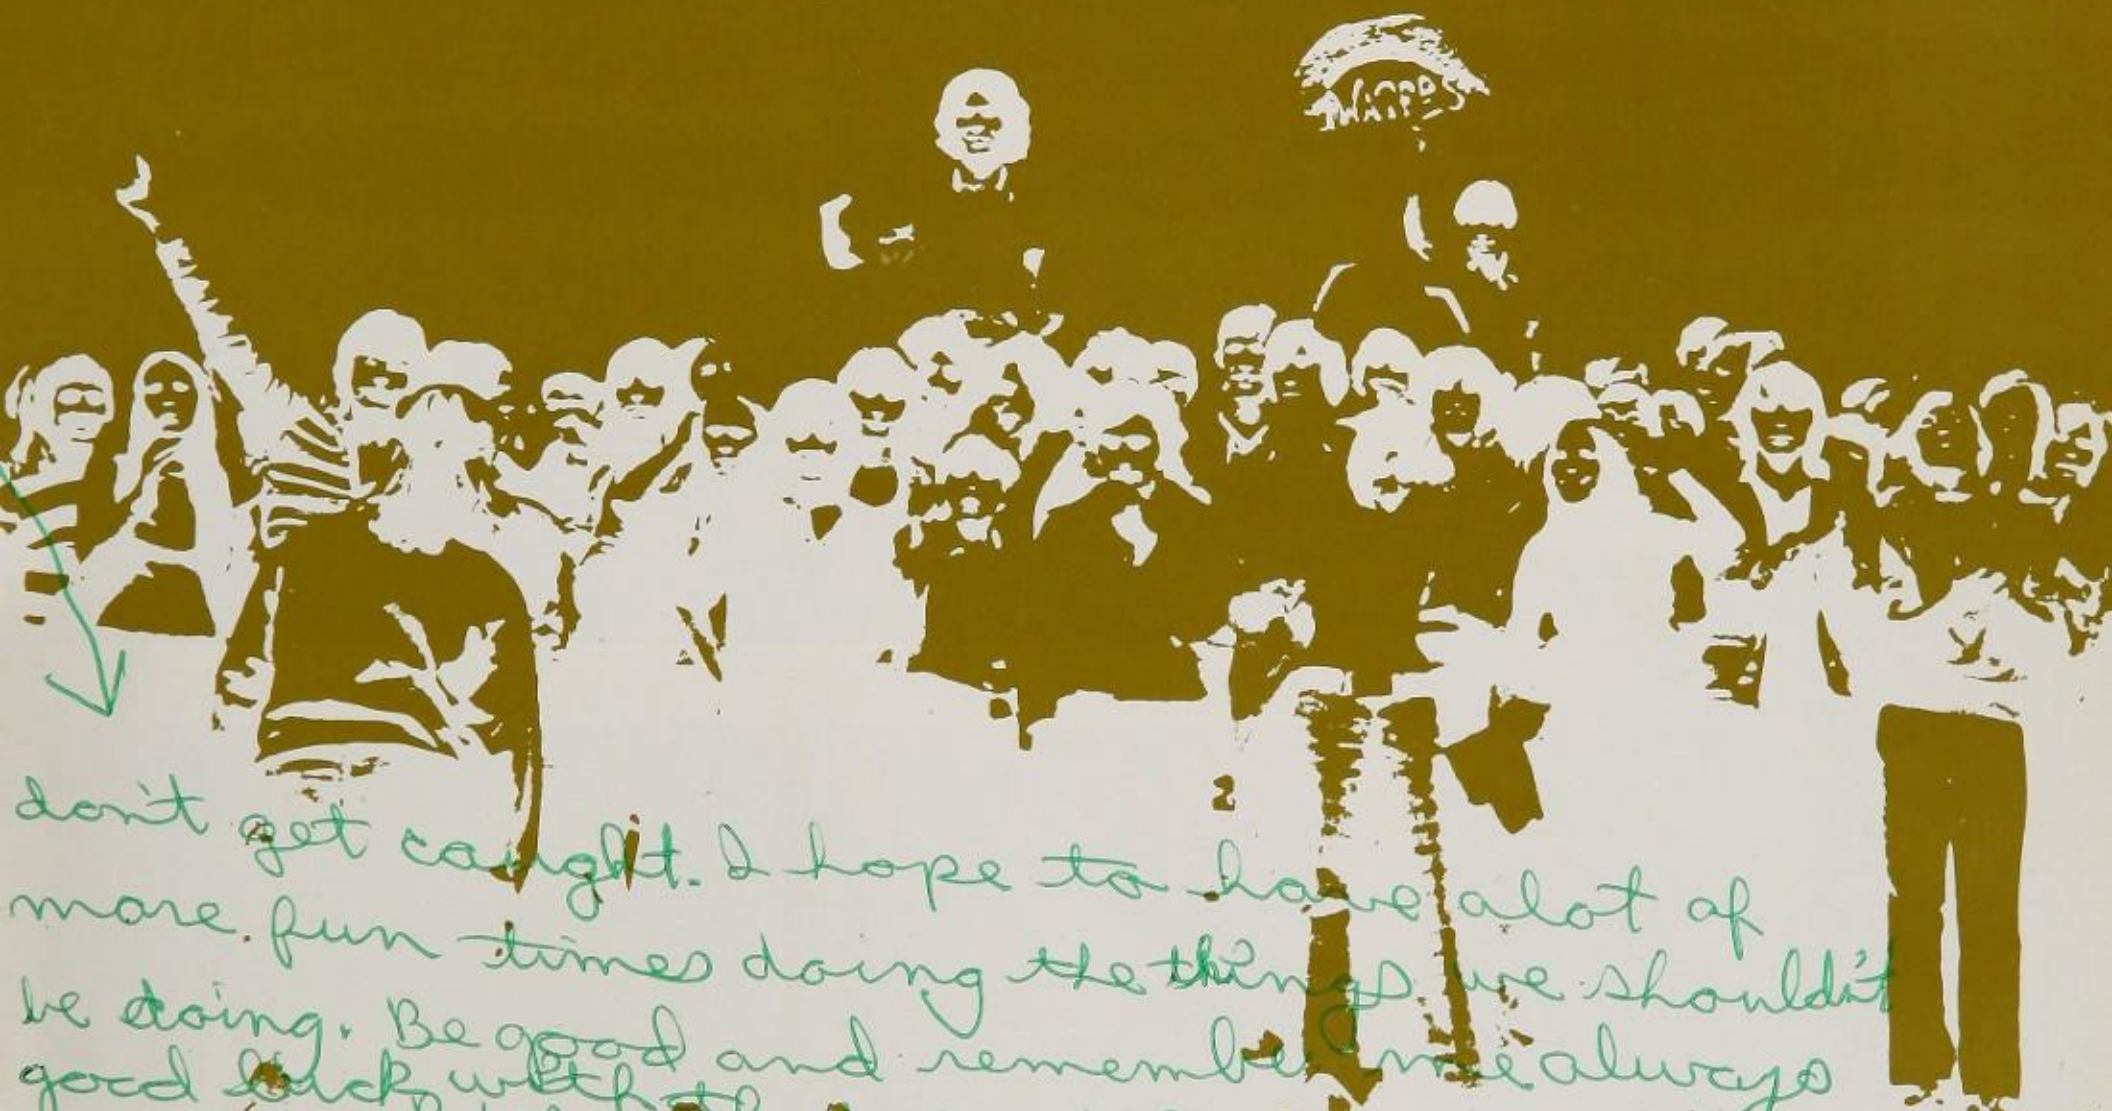 don't get caught. I hope to have alot of
more fun times doing the things we shouldn't
be doing. Be good and remember me always
good luck with